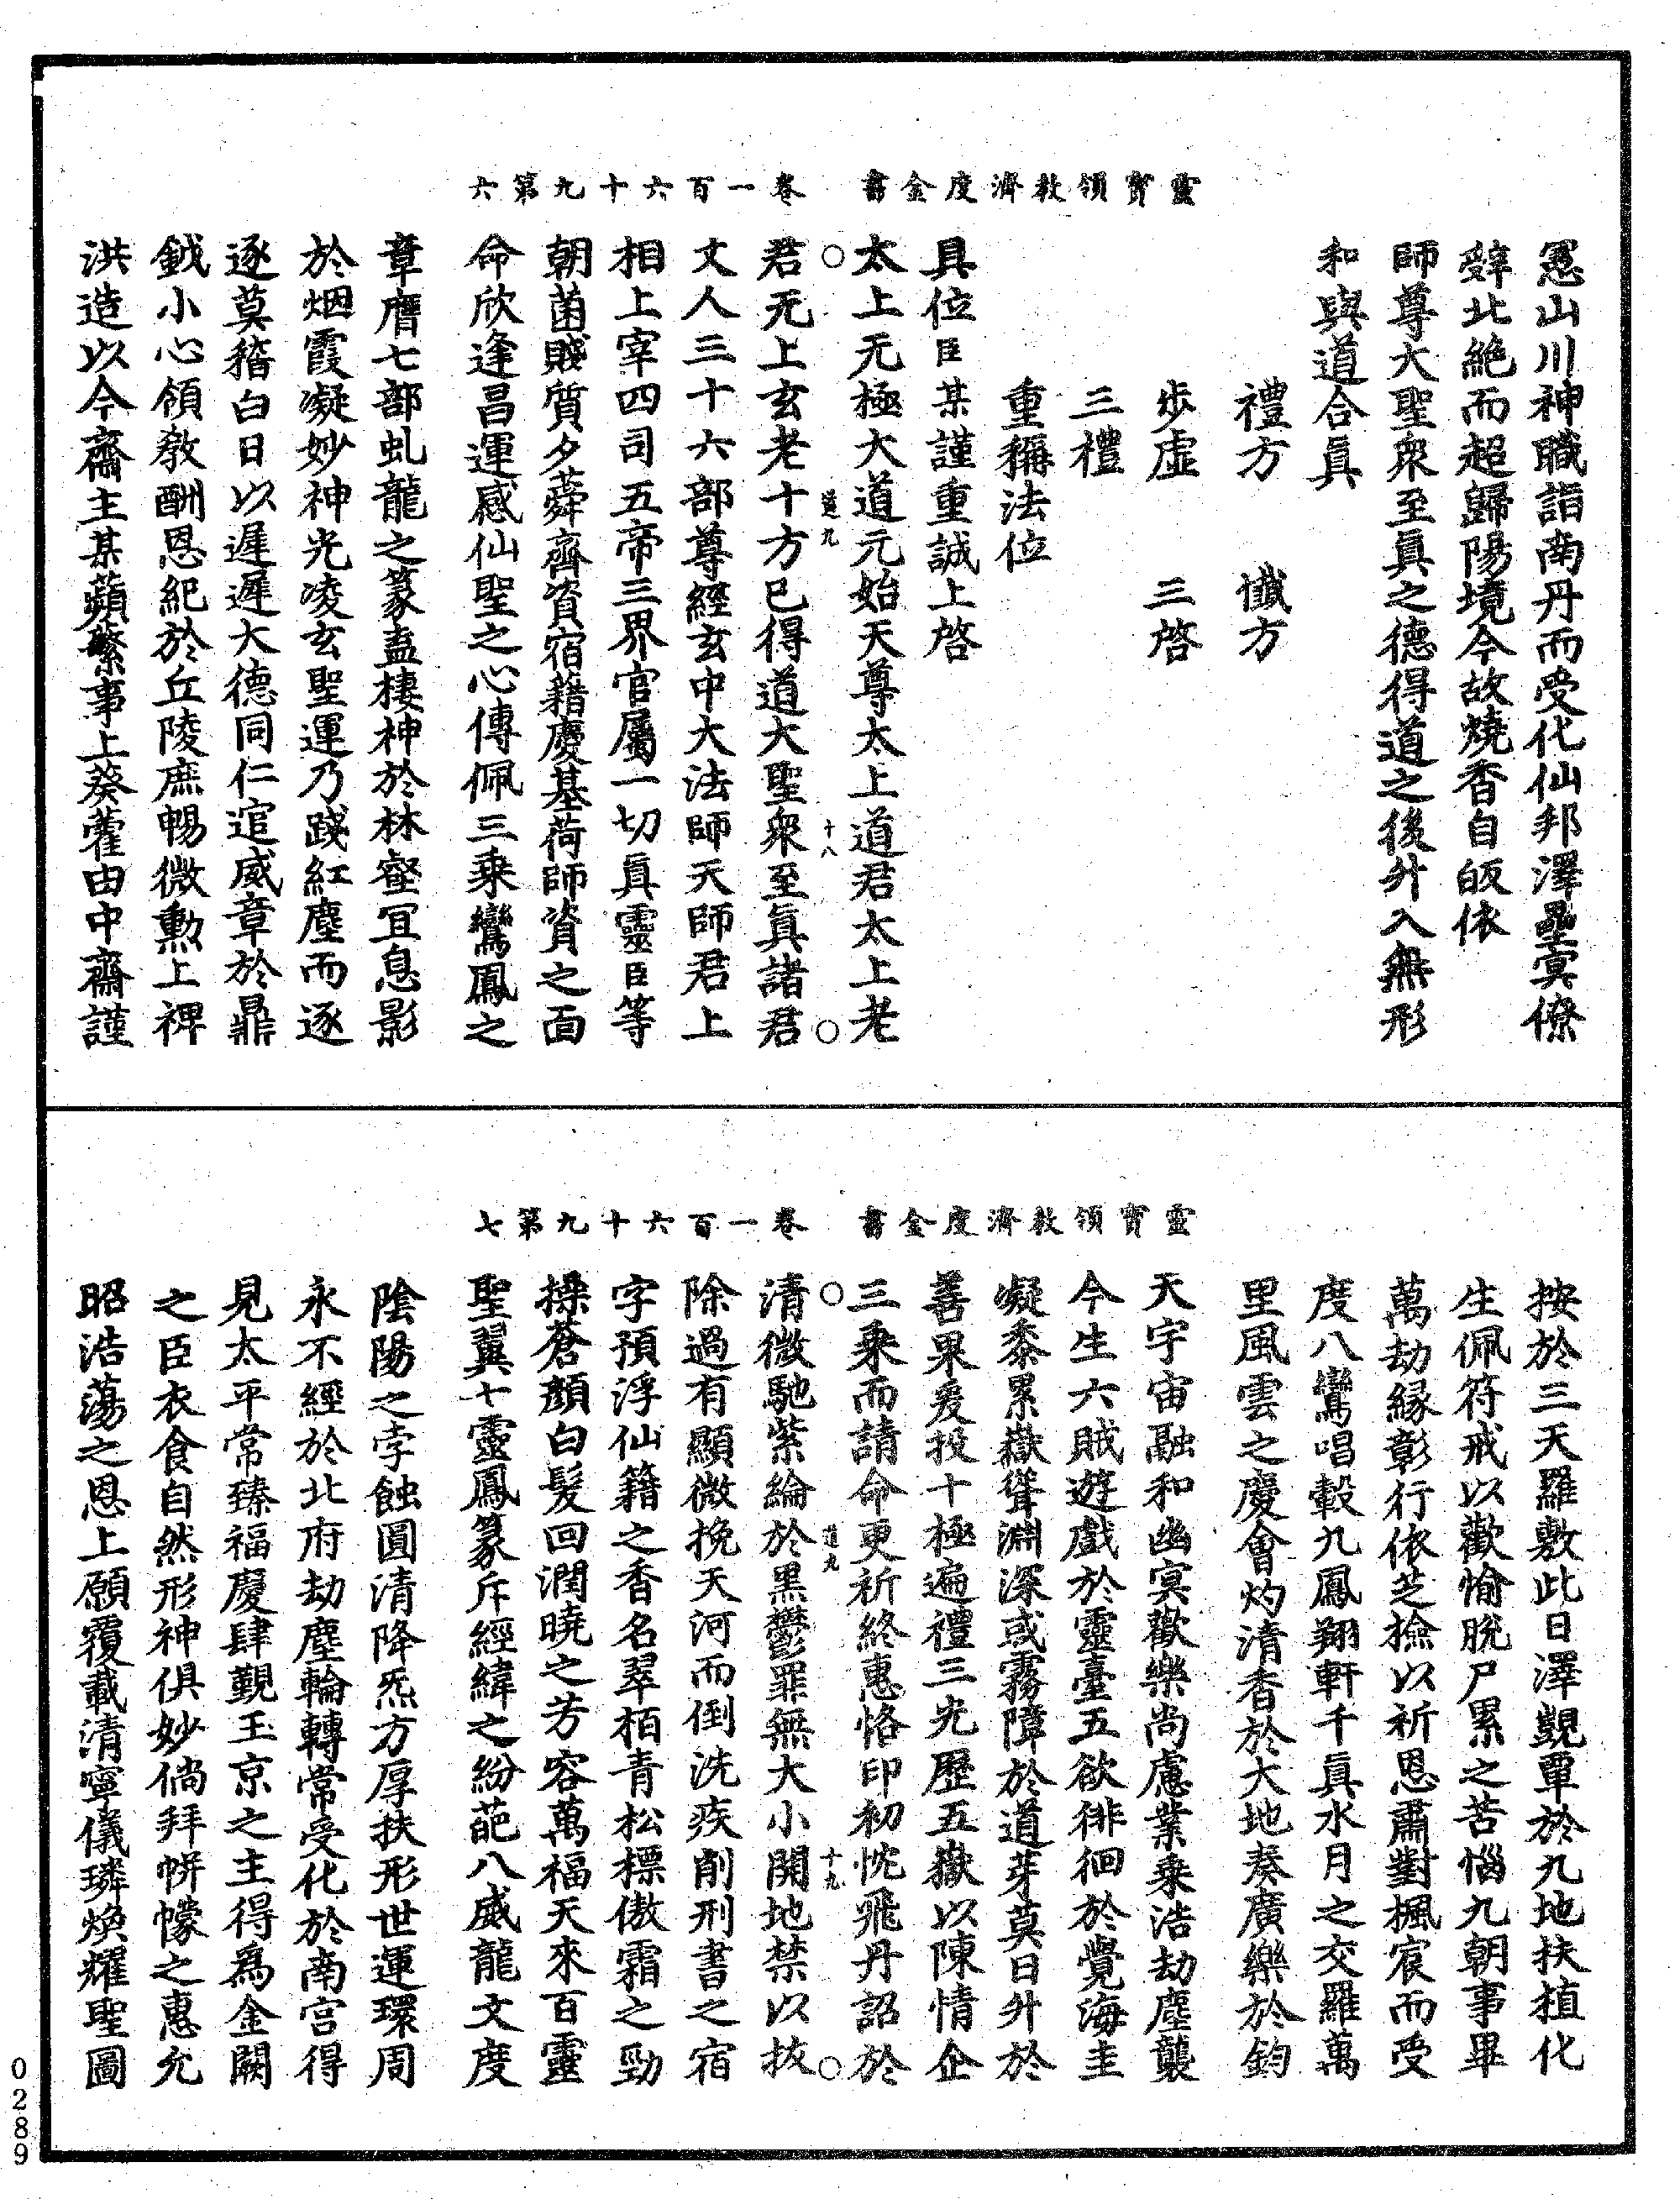 靈寶領教濟度金書　卷一百六十九第六
罳山川神職詣南丹而受化仙邦澤曇冥僚
辤北絶而超歸陽境今故燒香自皈依
師尊大聖衆至眞之德得道之後升入無形
和與道合眞
禮方　懺方
步虛　三啓
三禮
重稱法位
具位臣某謹重誠上啓
太上无極大道元始天尊太上道君太上老
道九　十八
君无上玄老十方已得道大聖衆至眞諸君
丈人三十六部尊經玄中大法師天師君上
相上宰四司五帝三界官屬一切眞靈臣等
朝菌賤質夕蕣齊資宿藉慶基荷師資之面
命欣逢昌運感仙聖之心傳佩三乘鸞鳳之
章膺七部虬龍之篆盍棲神於林壑宜息影
於烟霞凝妙神光凌玄聖運乃踐紅塵而逐
逐莫稽白日以遲遲大德同仁逭威章於鼎
鉞小心領敎酬恩紀於丘陵庶暢微勲上裨
洪造以今齋主某蘋蘩事上葵藿由中齋謹
靈寶領教濟度金書　卷一百六十九第七
按於三天羅敷此日澤覬覃於九地扶植化
生佩符戒以歡愉脫尸累之苦惱九朝事畢
萬劫緣彰行依芝撿以祈恩肅對楓宸而受
度八鸞唱轂九鳳翔軒千眞水月之交羅萬
里風雲之慶會灼清香於大地奏廣樂於鈞
天宇宙融和幽冥歡樂尚慮業乘浩劫塵襲
今生六賊遊戲於靈臺五欲徘徊於覺海圭
凝黍累嶽聳淵深或霧障於道芽莫日升於
善果爰投十極遍禮三光歷五嶽以陳情企
三乘而請命更祈終惠恪印初忱飛丹詔於
道九　十九
清微馳紫綸於黑鬱罪無大小開地禁以拔
除過有顯微挽天河而倒洗疾削刑書之宿
字預浮仙籍之香名翠栢青松標傲霜之勁
操蒼顏白髮回潤曉之芳容萬福天來百靈
聖翼七靈鳳篆斥經緯之紛葩八威龍文度
陰陽之孛蝕圓清降炁方厚扶形世運環周
永不經於北府劫塵輪轉常受化於南宮得
見太平常臻福慶肆覲玉京之主得爲金闕
之臣衣食自然形神俱妙倘拜帡幪之惠允
昭浩蕩之恩上願覆載清寧儀璘煥耀聖圖
0289